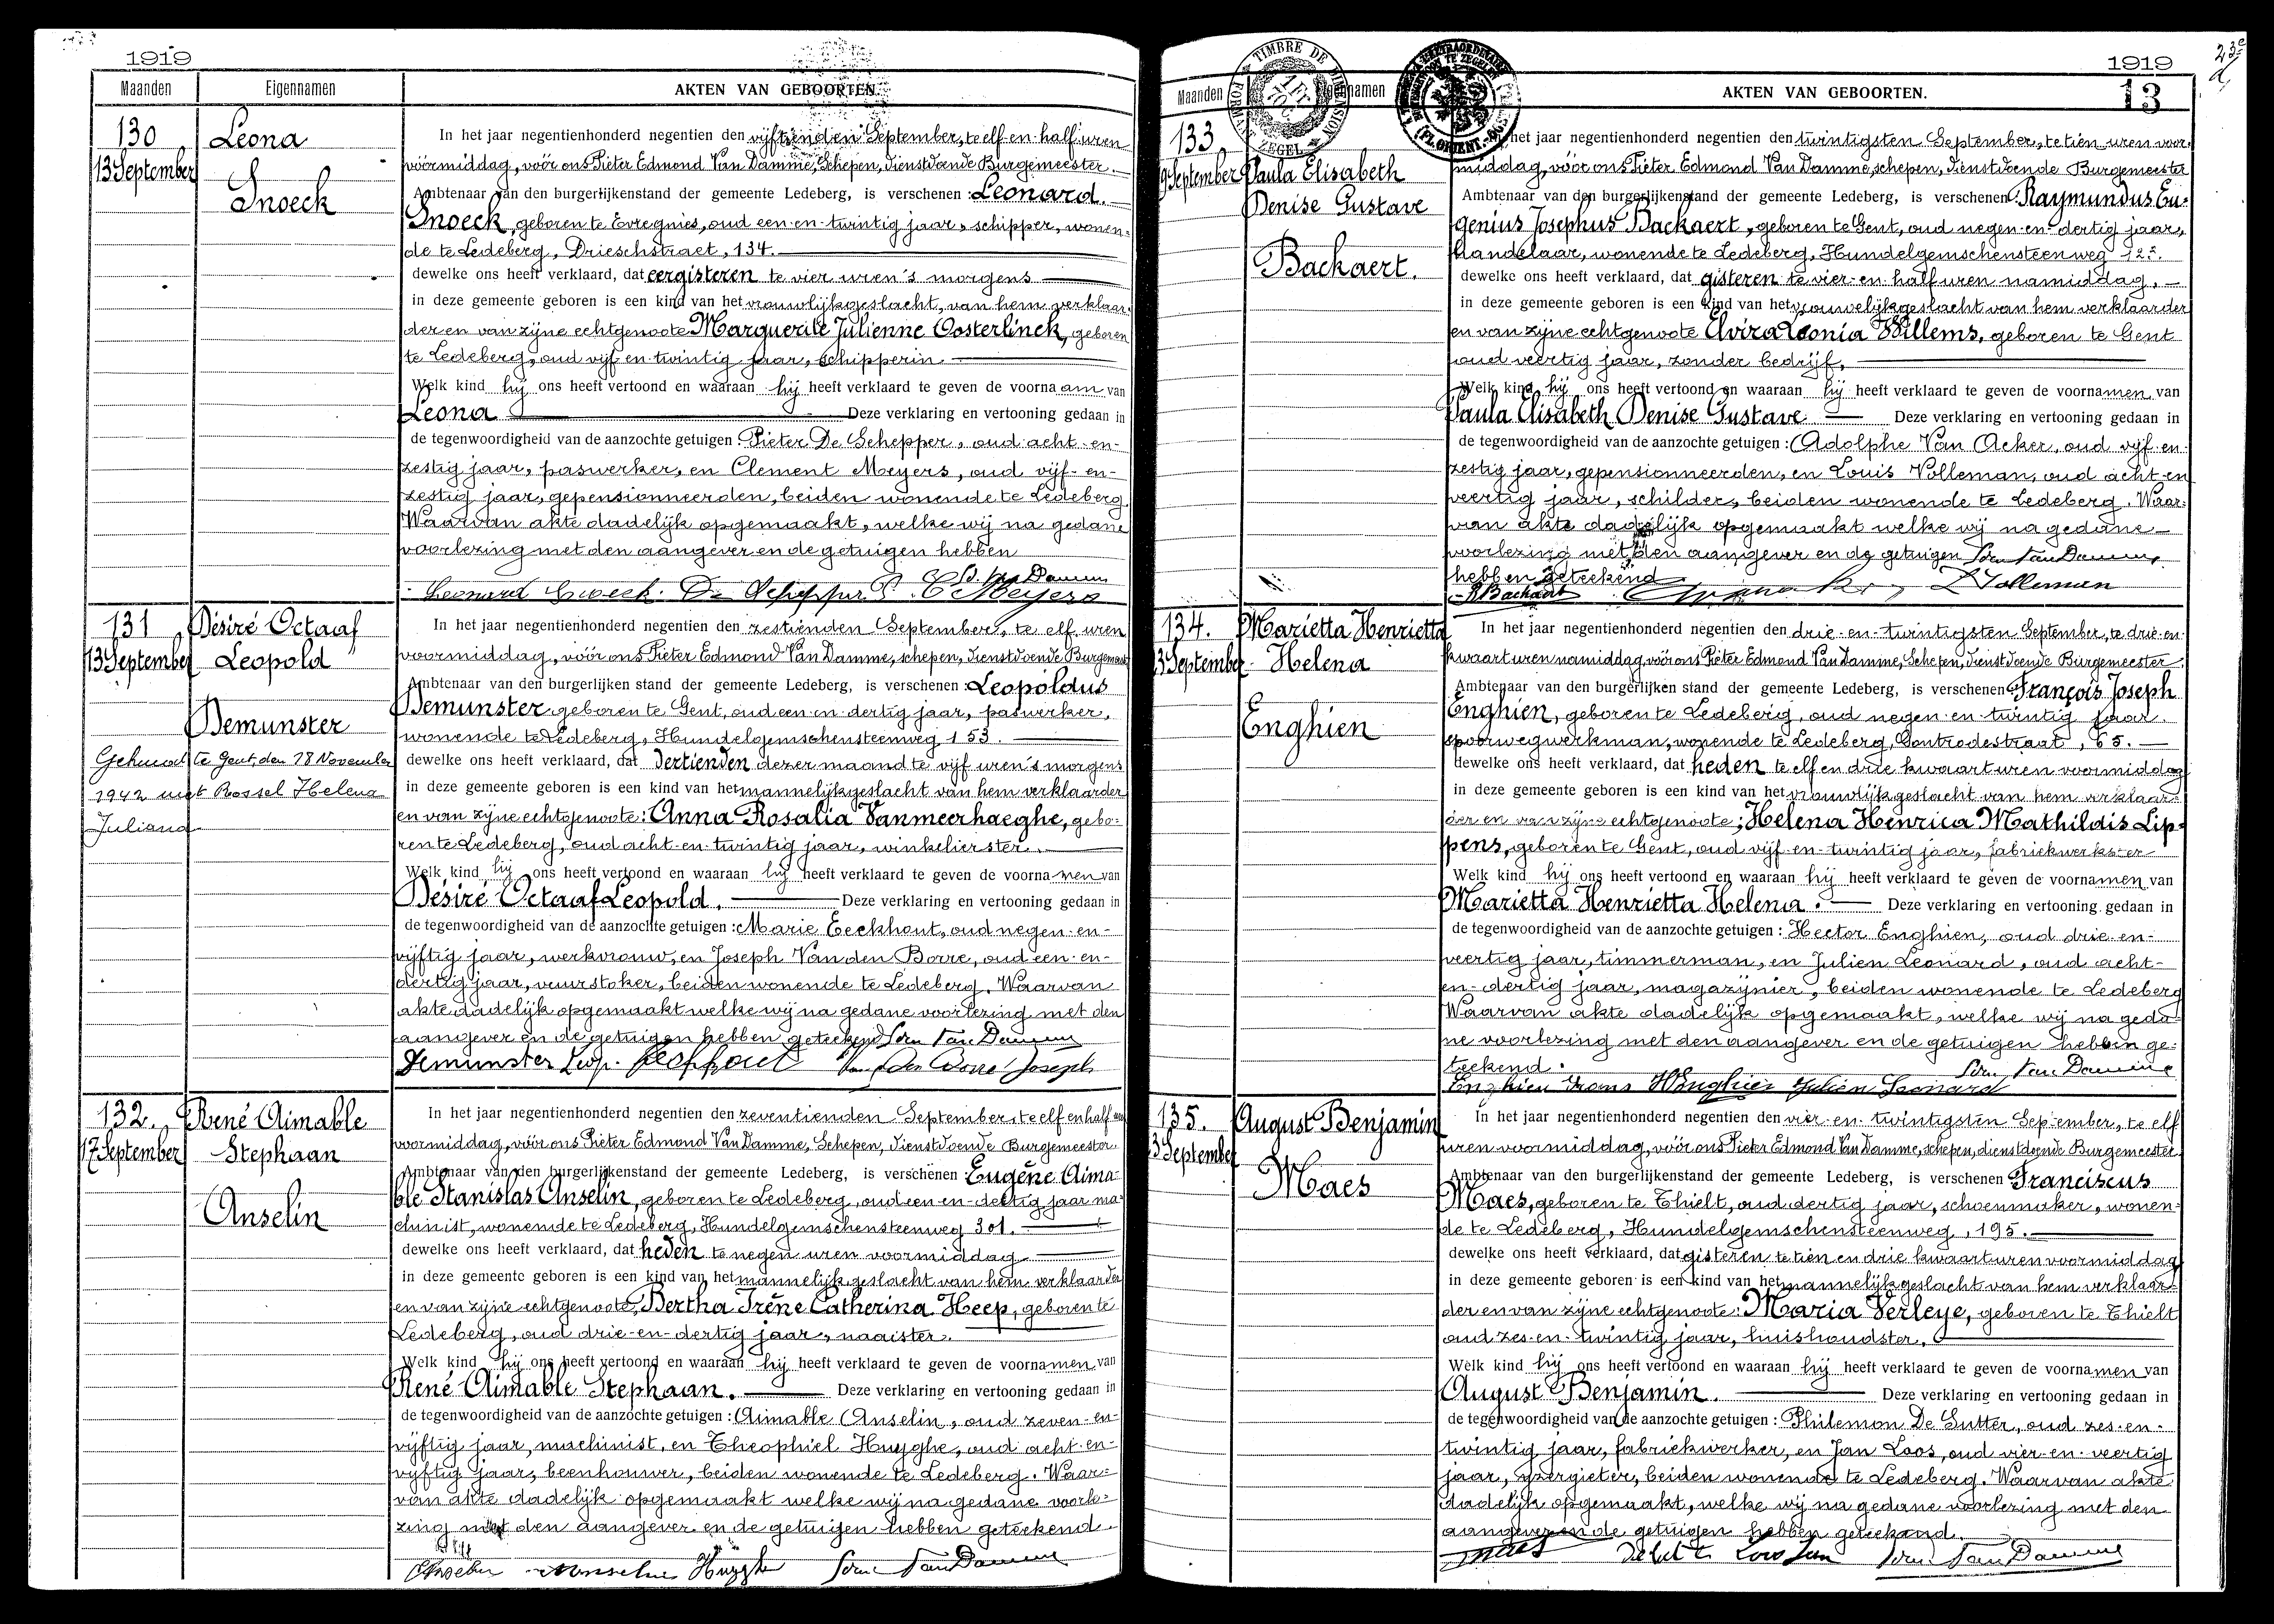 1919
Maanden Eigennamen AKTEN VAN GEBOORTEN.
130 Leona
13 September
Snoeck
In het jaar negentienhonderd negentien den vijftienden September, te elf en half uren
vóórmiddag, vóór ons Pieter Edmond Van Damme, Schepen, dienstdoende Burgemeester.
Ambtenaar van den burgerlijkenstand der gemeente Ledeberg, is verschenen : Leonard
Snoeck, geboren te Evregnies, oud een-en-twintig jaar, schipper, wonen-
de te Ledeberg, Drieschstraet, 134.
dewelke ons heeft verklaard, dat eergisteren te vier uren 's morgens
in deze gemeente geboren is een kind van het vrouwlijkgeslacht, van hem verklaar-
der en van zijne echtgenoote Marguerite Julienne Oosterlinck, geboren
te Ledeberg, oud vijf en-twintig jaar, schipperin
Welk kind hij ons heeft vertoond en waaraan hij heeft verklaard te geven de voornaam van
Leona Deze verklaring en vertooning gedaan in
de tegenwoordigheid van de aanzochte getuigen : Pieter De Schepper, oud acht-en-
zestig jaar, paswerker, en Clement Meyers, oud vijf-en-
zestig jaar, gepensionneerden, beiden wonende te Ledeberg.
Waarvan akte dadelijk opgemaakt, welke wij na gedane
voorlezing met den aangever en de getuigen hebben
Leonard Snoeck. De Schepper P. C Meyers
131 Désiré Octaaf
13 September Leopold
Demunster
Gehuwd te Gent, den 28 November
1942 met Rossel Helena
Juliana
In het jaar negentienhonderd negentien den zestienden September, te elf uren
voormiddag, vóór ons Pieter Edmond Van Damme, schepen, dienstdoende Burgemeester
Ambtenaar van den burgerlijken stand der gemeente Ledeberg, is verschenen : Leopoldus
Demunster geboren te Gent, oud een-en-dertig jaar, paswerker,
wonende te Ledeberg, Hundelgemschensteenweg 153.
dewelke ons heeft verklaard, dat dertienden dezer maand te vijf uren 's morgens
in deze gemeente geboren is een kind van het mannelijkgeslacht van hem verklaarder
en van zijne echtgenoote : Anna Rosalia Vanmeerhaeghe, gebo-
ren te Ledeberg, oud acht-en-twintig jaar, winkelierster.
Welk kind hij ons heeft vertoond en waaraan hij heeft verklaard te geven de voornamen van
Désiré Octaaf Leopold. Deze verklaring en vertooning gedaan in
de tegenwoordigheid van de aanzochte getuigen : Marie Eeckhout, oud negen-en-
vijftig jaar, werkvrouw, en Joseph Van den Borre, oud een-en-
dertig jaar, vuurstoker, beiden wonende te Ledeberg. Waarvan
akte dadelijk opgemaakt welke wij na gedane voorlezing met den
aangever en de getuigen hebben geteekend Van Damme
Demunster Leop. Eeckhout Van den Borre Joseph
132. René Aimable
17 September Stephaan
Anselin
In het jaar negentienhonderd negentien den zeventienden September, te elf en half uren
voormiddag, vóór ons Pieter Edmond Van Damme, Schepen, dienstdoende Burgemeester
Ambtenaar van den burgerlijkenstand der gemeente Ledeberg, is verschenen Eugène Aima-
ble Stanislas Anselin, geboren te Ledeberg, oud een-en-dertig jaar ma-
chinist, wonende te Ledeberg, Hundelgemschensteenweg 301.
dewelke ons heeft verklaard, dat heden te negen uren voormiddag
in deze gemeente geboren is een kind van het mannelijk geslacht van hem verklaarder
en van zijne echtgenoote, Bertha Irène Catherina Heep, geboren te
Ledeberg, oud drie-en-dertig jaar, naaister.
Welk kind hij ons heeft vertoond en waaraan hij heeft verklaard te geven de voornamen van
René Aimable Stephaan. Deze verklaring en vertooning gedaan in
de tegenwoordigheid van de aanzochte getuigen : Aimable Anselin, oud zeven-en-
vijftig jaar, machinist, en Theophiel Huyghe, oud acht-en-
vijftig jaar, beenhouwer, beiden wonende te Ledeberg. Waar-
van akte dadelijk opgemaakt welke wij na gedane voorle-
zing met den aangever en de getuigen hebben geteekend.
Huyghe Van Damme
1919
13
Maanden AKTEN VAN GEBOORTEN.
TIMBRE DE DIMENSION
FORMAAT ZEGEL
133
19 September Paula Elisabeth
Denise Gustave
Backaert.
het jaar negentienhonderd negentien den twintigsten September, te tien uren voor-
middag, vóór ons Pieter Edmond Van Damme, schepen, dienstdoende Burgemeester
Ambtenaar van den burgerlijkenstand der gemeente Ledeberg, is verschenen Raymundus Eu-
genius Josephus Backaert, geboren te Gent, oud negen-en-dertig jaar,
handelaar, wonende te Ledeberg, Hundelgemschensteenweg
dewelke ons heeft verklaard, dat gisteren te vier-en-half uren namiddag.
in deze gemeente geboren is een kind van het vrouwelijkgeslacht van hem verklaarder
en van zijne echtgenoote Elvira Leonia Willems, geboren te Gent
oud veertig jaar, zonder bedrijf,
Welk kind hij ons heeft vertoond en waaraan hij heeft verklaard te geven de voornamen van
Paula Elisabeth Denise Gustave Deze verklaring en vertooning gedaan in
de tegenwoordigheid van de aanzochte getuigen : Adolphe Van Acker, oud vijf-en-
zestig jaar, gepensionneerden, en Louis Volleman, oud acht-en
veertig jaar, schilder, beiden wonende te Ledeberg. Waar-
van akte dadelijk opgemaakt welke wij na gedane
voorlezing met den aangever en de getuigen Van Damme
hebben geteekend
R Backaert L Volleman
134. Marietta Henrietta
23 September Helena
Enghien
In het jaar negentienhonderd negentien den drie-en-twintigsten September, te drie-en-
kwaart uren namiddag, vóór ons Pieter Edmond Van Damme, Schepen, dienstdoende Burgemeester
Ambtenaar van den burgerlijken stand der gemeente Ledeberg, is verschenen François Joseph
Enghien, geboren te Ledeberg, oud negen-en-twintig jaar.
spoorwegwerkman, wonende te Ledeberg, Gontrodestraat, 65.
dewelke ons heeft verklaard, dat heden te elf en drie kwaart uren voormiddag
in deze gemeente geboren is een kind van het vrouwlijkgeslacht van hem verklaar-
der en van zijne echtgenoote ; Helena Henrica Mathildis Lip-
pens, geboren te Gent, oud vijf-en-twintig jaar, fabriekwerkster
Welk kind hij ons heeft vertoond en waaraan hij heeft verklaard te geven de voornamen van
Marietta Henrietta Helena. Deze verklaring en vertooning gedaan in
de tegenwoordigheid van de aanzochte getuigen : Hector Enghien, oud drie-en-
veertig jaar, timmerman, en Julien Leonard, oud acht-
en-dertig jaar, magazijnier, beiden wonende te Ledeberg
Waarvan akte dadelijk opgemaakt, welke wij na geda-
ne voorlezing met den aangever en de getuigen hebben ge-
teekend. Van Damme
Enghien Frans H Enghien Julien Leonard
135. August Benjamin
23 September
Maes
In het jaar negentienhonderd negentien den vier-en-twintigsten September, te elf
uren voormiddag, vóór ons Pieter Edmond Van Damme, schepen, dienstdoende Burgemeester
Ambtenaar van den burgerlijkenstand der gemeente Ledeberg, is verschenen Franciscus
Maes, geboren te Thielt, oud dertig jaar, schoenmaker, wonen-
de te Ledeberg, Hundelgemschensteenweg, 195.
dewelke ons heeft verklaard, dat gisteren te tien en drie kwaart uren voormiddag
in deze gemeente geboren is een kind van het mannelijkgeslacht van hem verklaar-
der en van zijne echtgenoote : Maria Verleye, geboren te Thielt
oud zes-en-twintig jaar, huishoudster.
Welk kind hij ons heeft vertoond en waaraan hij heeft verklaard te geven de voornamen van
August Benjamin. Deze verklaring en vertooning gedaan in
de tegenwoordigheid van de aanzochte getuigen : Philemon De Sutter, oud zes-en-
twintig jaar, fabriekwerker, en Jan Loos, oud vier-en-veertig
jaar, yzergieter, beiden wonende te Ledeberg. Waarvan akte
dadelijk opgemaakt, welke wij na gedane voorlezing met den
aangever en de getuigen hebben geteekend.
Maes Loos Jan Van Damme